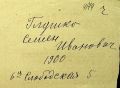 Глушко
Семен
Иванович
1900
6ая Слободская 5